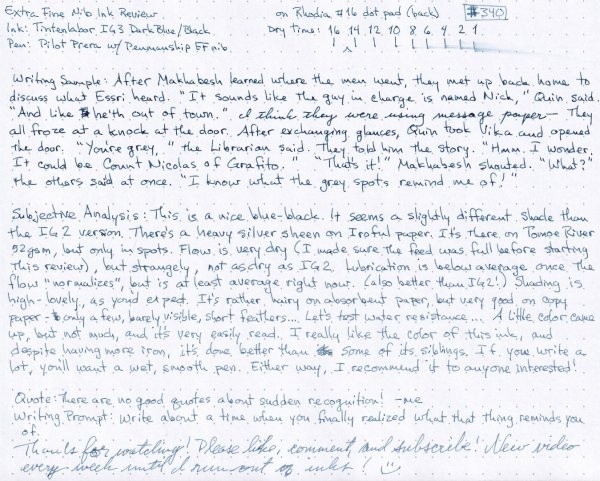 Extra Fine Nib Ink Review on Rhodia #16 dot pad (back) #340
Ink: Tintenlabor IG3 Dark Blue/Black Dry Time: 16 14 12 10 8 6 4 2 1
Pen: Pilot Prera w/ Penmanship EF nib
Writing Sample: After Makhabesh learned where the men went, they met up back home to
discuss what Essri heard. "It sounds like the guy in charge is named Nick," Quin said.
"And like he'th out of town." I think they were using message paper— They
all froze at a knock at the door. After exchanging glances, Quin took Vika and opened
the door. "You're grey," the Librarian said. They told him the story. "Hmm. I wonder.
It could be Count Nicolas of Grafito." "That's it!" Makhabesh shouted. "What?"
the others said at once. "I know what the grey spots remind me of!"
Subjective Analysis: This is a nice blue-black. It seems a slightly different shade than
the IG2 version. There's a heavy silver sheen on Iroful paper. It's there on Tomoe River
52gsm, but only in spots. Flow is very dry (I made sure the feed was full before starting
this review), but strangely, not as dry as IG2. Lubrication is below average once the
flow "normalizes", but is at least average right now. (also better than IG2!) Shading is
high - lovely, as you'd expect. It's rather hairy on absorbent paper, but very good on copy
paper - only a few, barely visible, short feathers... Let's test water resistance... A little color came
up, but not much, and it's very easily read. I really like the color of this ink, and
despite having more iron, it's done better than some of its siblings. If you write a
lot, you'll want a wet, smooth pen. Either way, I recommend it to anyone interested!
Quote: There are no good quotes about sudden recognition! -me
Writing Prompt: Write about a time when you finally realized what that thing reminds you
of.
Thanks for watching! Please like, comment, and subscribe! New video
every week until I run out of inks!